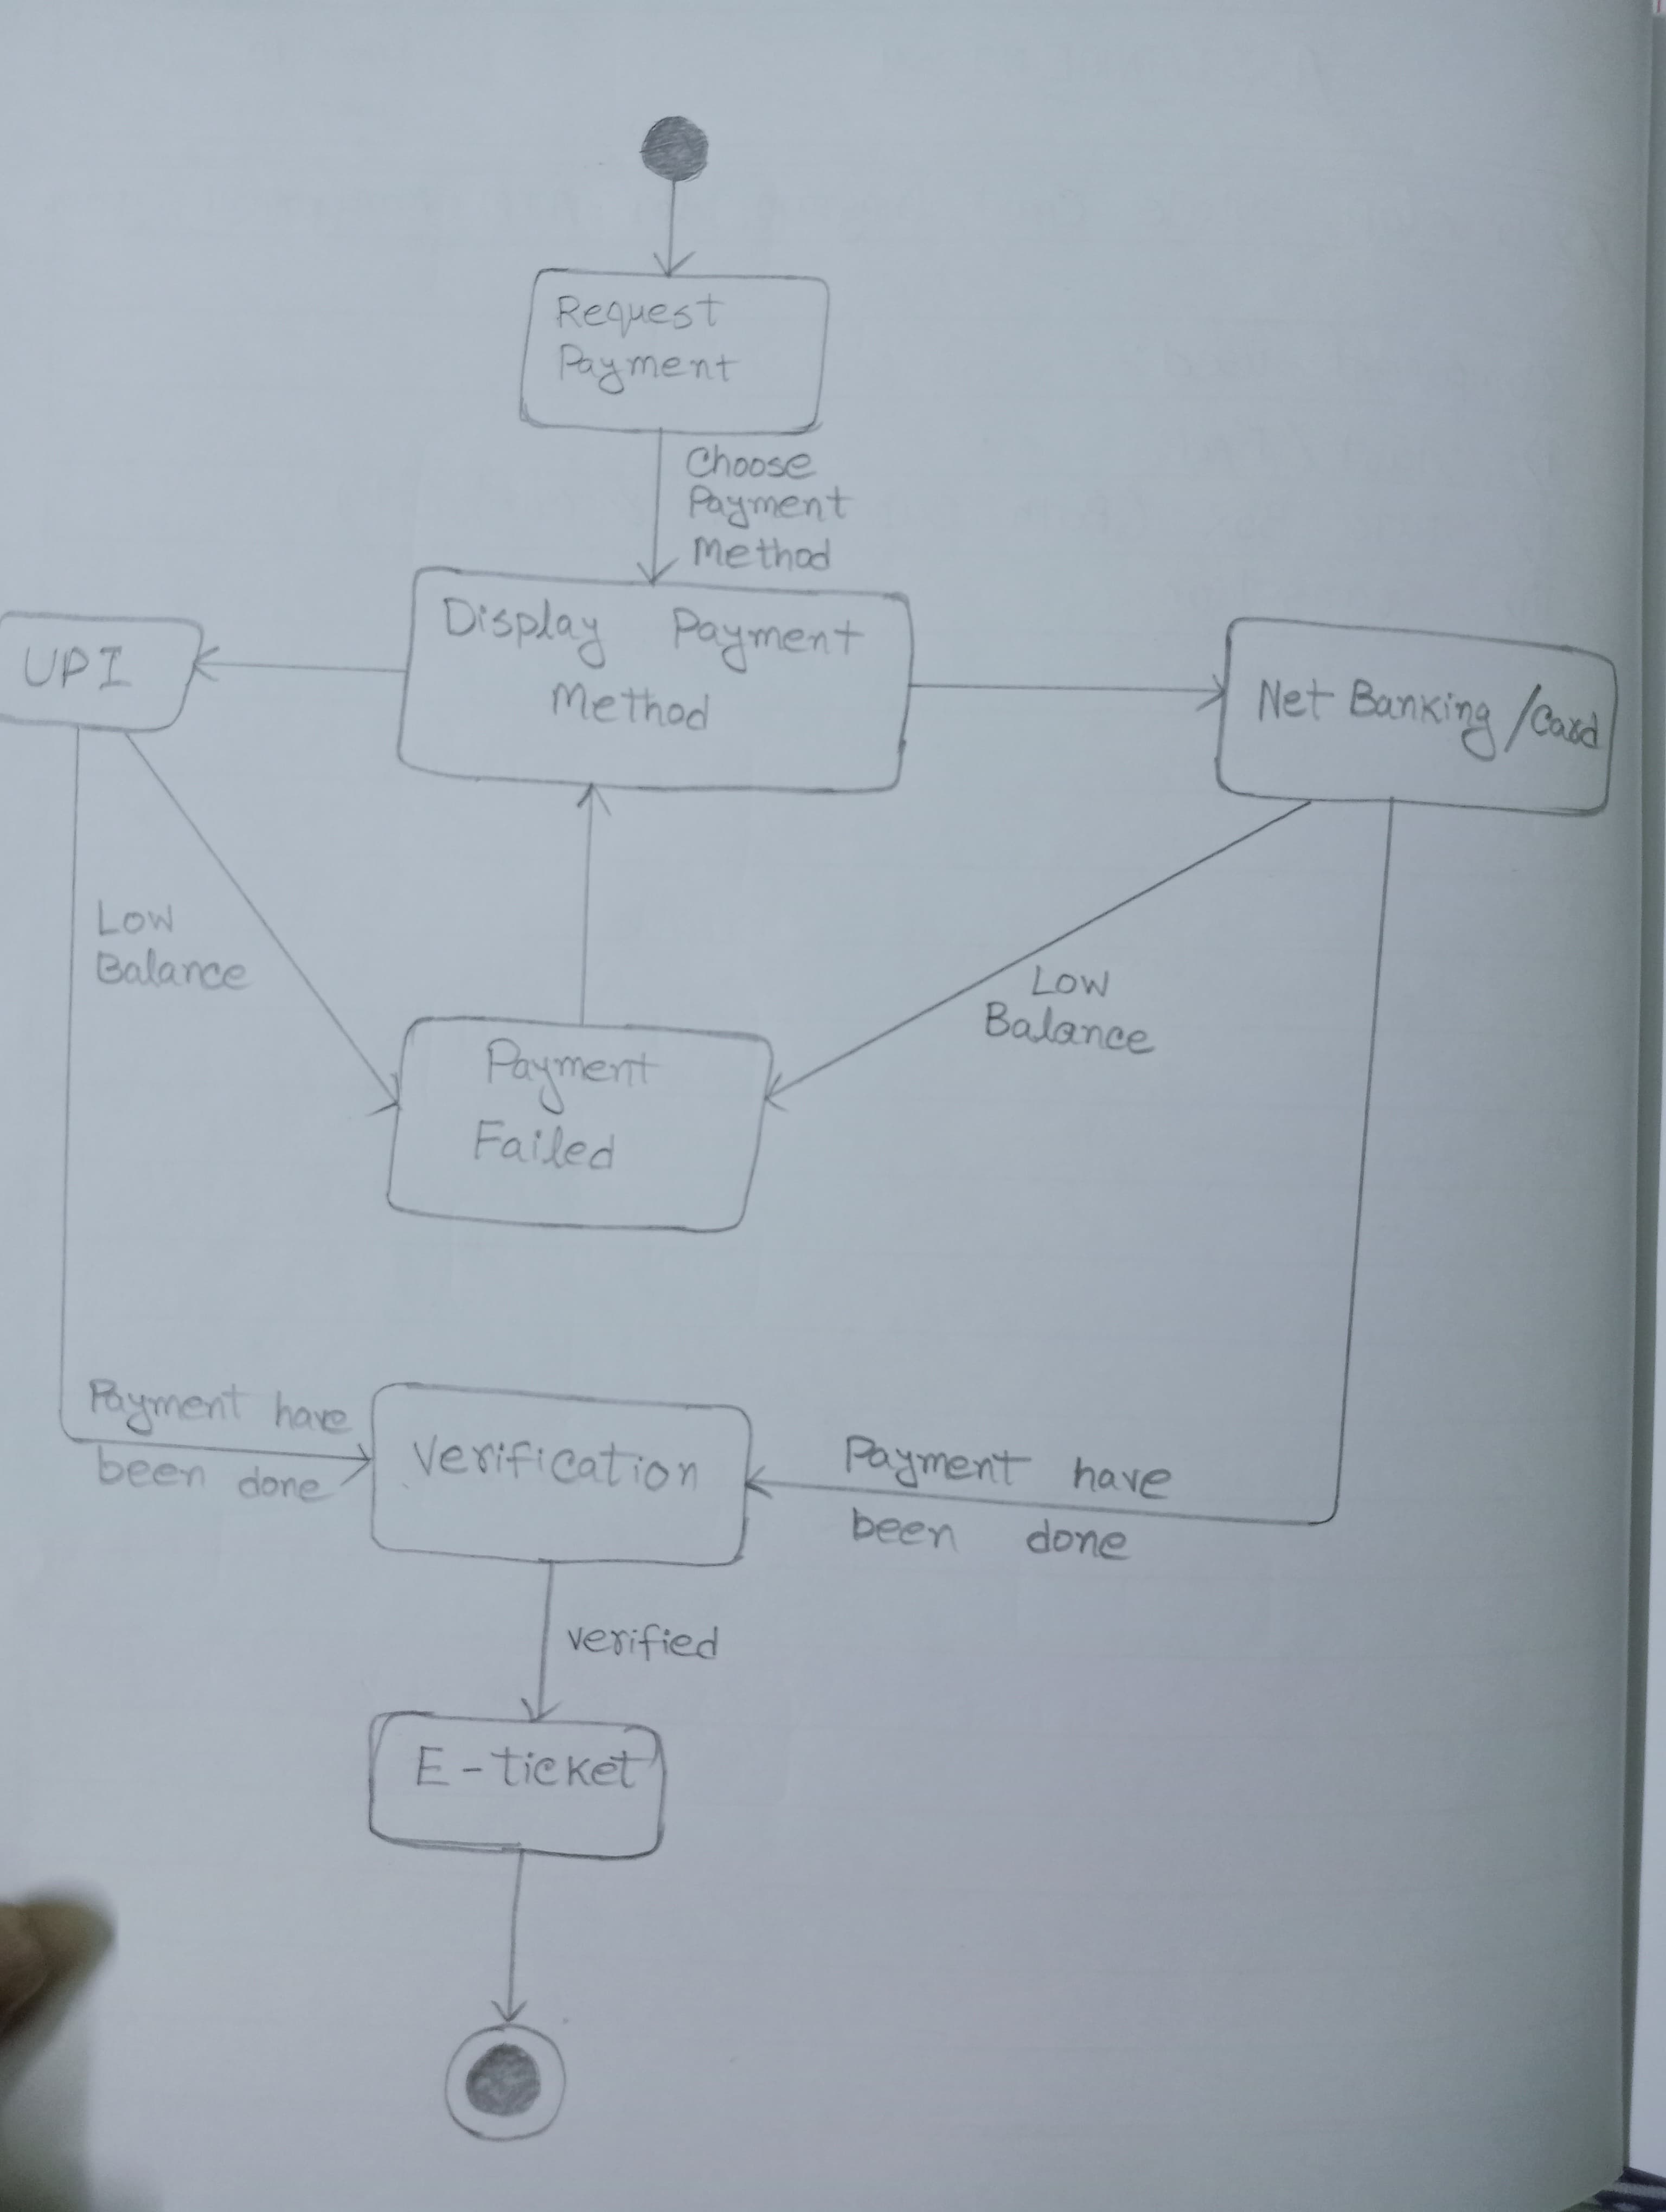 Request
Payment
Choose
Payment
Method
Display Payment
Method
UPI
Net Banking/Card
Low
Balance
Low
Balance
Payment
Failed
Payment have
been done
Verification
Payment have
been done
verified
E-ticket